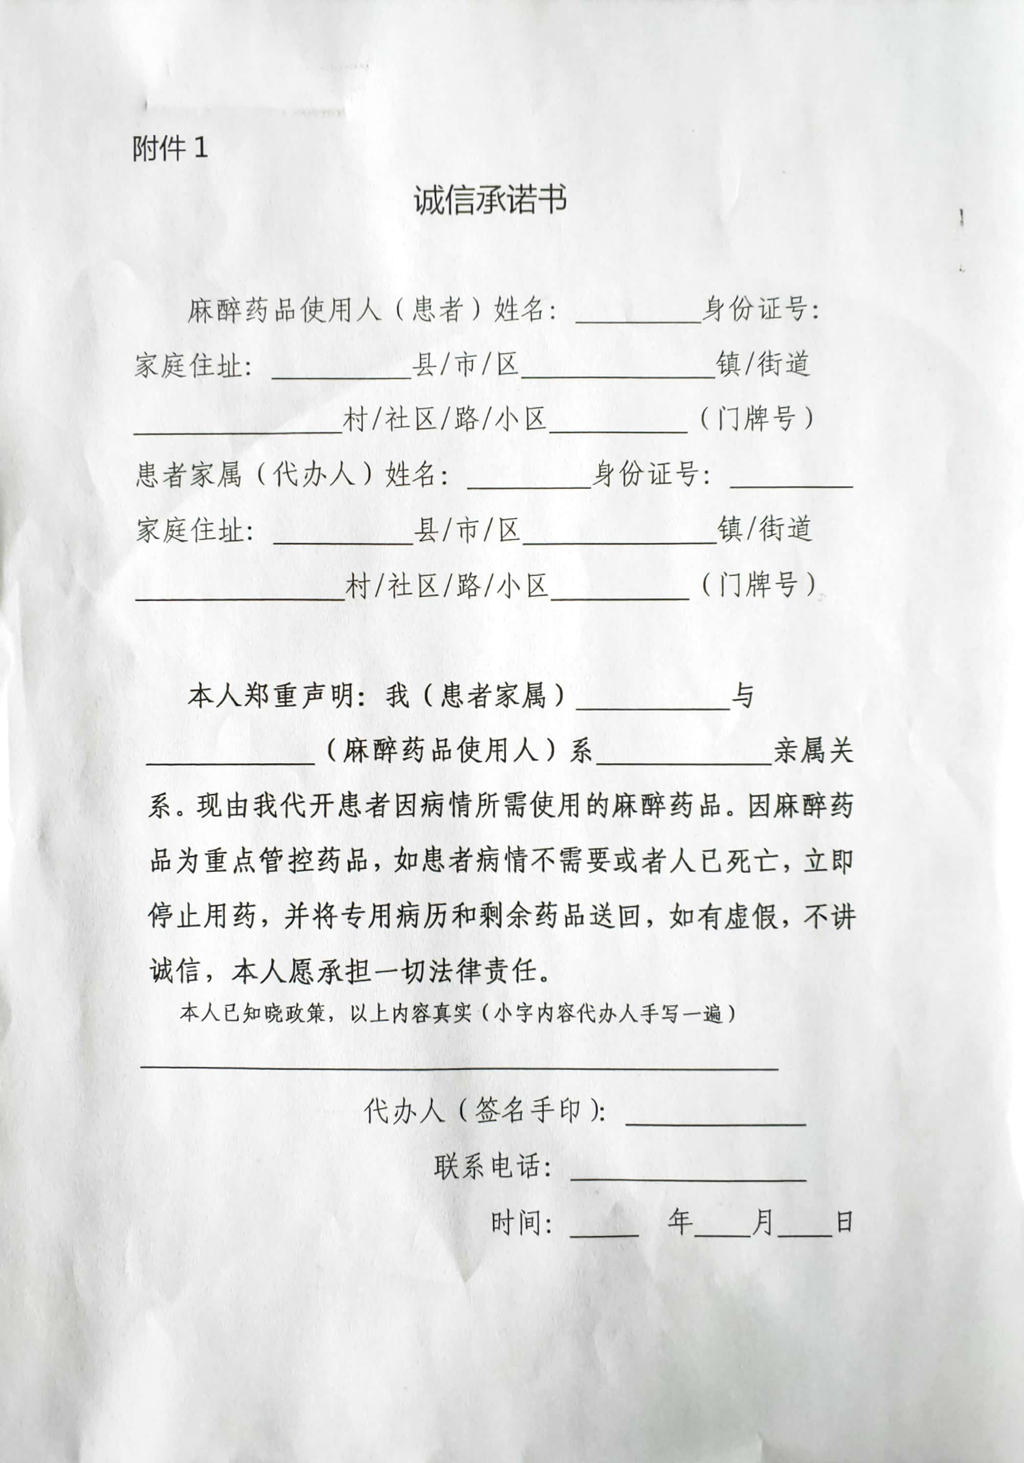 附件 1
诚信承诺书
麻醉药品使用人（患者）姓名：_________身份证号：
家庭住址：__________县/市/区______________镇/街道
_______________村/社区/路/小区__________（门牌号）
患者家属（代办人）姓名：_________身份证号：_________
家庭住址：__________县/市/区______________镇/街道
_______________村/社区/路/小区__________（门牌号）
本人郑重声明：我（患者家属）___________与
____________（麻醉药品使用人）系_____________亲属关
系。现由我代开患者因病情所需使用的麻醉药品。因麻醉药
品为重点管控药品，如患者病情不需要或者人已死亡，立即
停止用药，并将专用病历和剩余药品送回，如有虚假，不讲
诚信，本人愿承担一切法律责任。
本人已知晓政策，以上内容真实（小字内容代办人手写一遍）
代办人（签名手印）：_____________
联系电话：_________________
时间：_____ 年____月____日